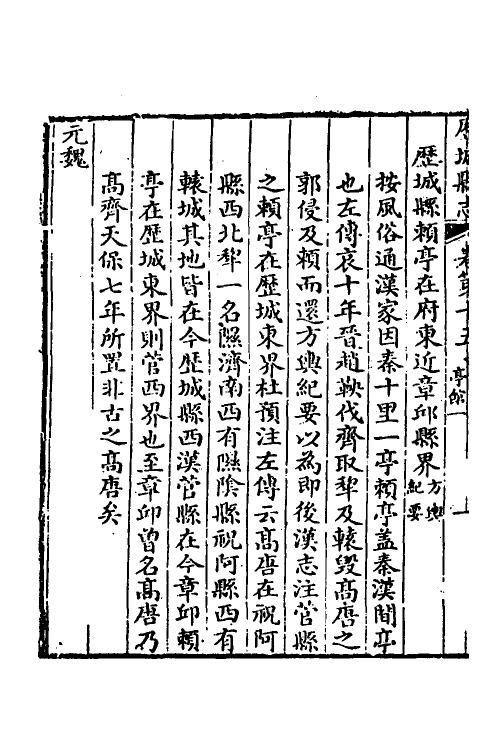 歷城縣志 卷第十五 亭館一 一
歷城縣賴亭在府東近章邱縣界方輿紀要
按風俗通漢家因秦十里一亭賴亭蓋秦漢間亭
也左傳哀十年晉趙鞅伐齊取犂及轅毀高唐之
郭侵及賴而還方輿紀要以為即後漢志注菅縣
之賴亭在歷城東界杜預注左傳云高唐在祝阿
縣西北犂一名隰濟南西有隰陰縣祝阿縣西有
轅城其地皆在今歷城縣西漢菅縣在今章邱賴
亭在歷城東界則菅西界也至章邱曾名高唐乃
高齊天保七年所置非古之高唐矣
元魏